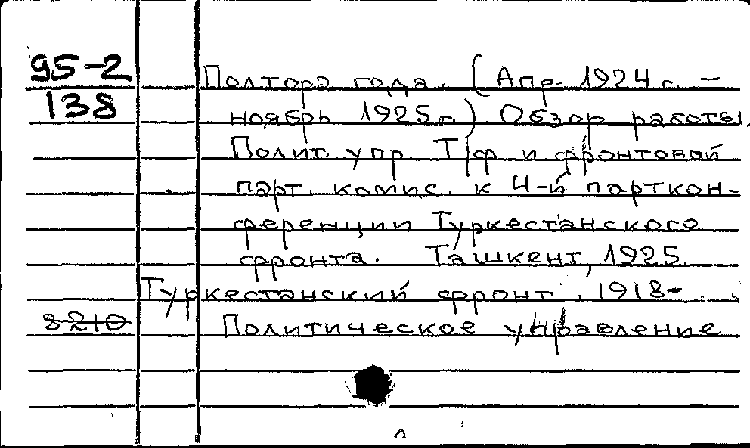 95-2 Полтора года. (Апр. 1924 г. –
138 ноябрь 1925 г.) Обзор работы
Полит. упр. Т/ф и фронтовой
парт. комис. к 4-й парткон-
ференции Туркестанского
фронта. Ташкент, 1925.
Туркестанский фронт. 1918-
8210 Политическое управление